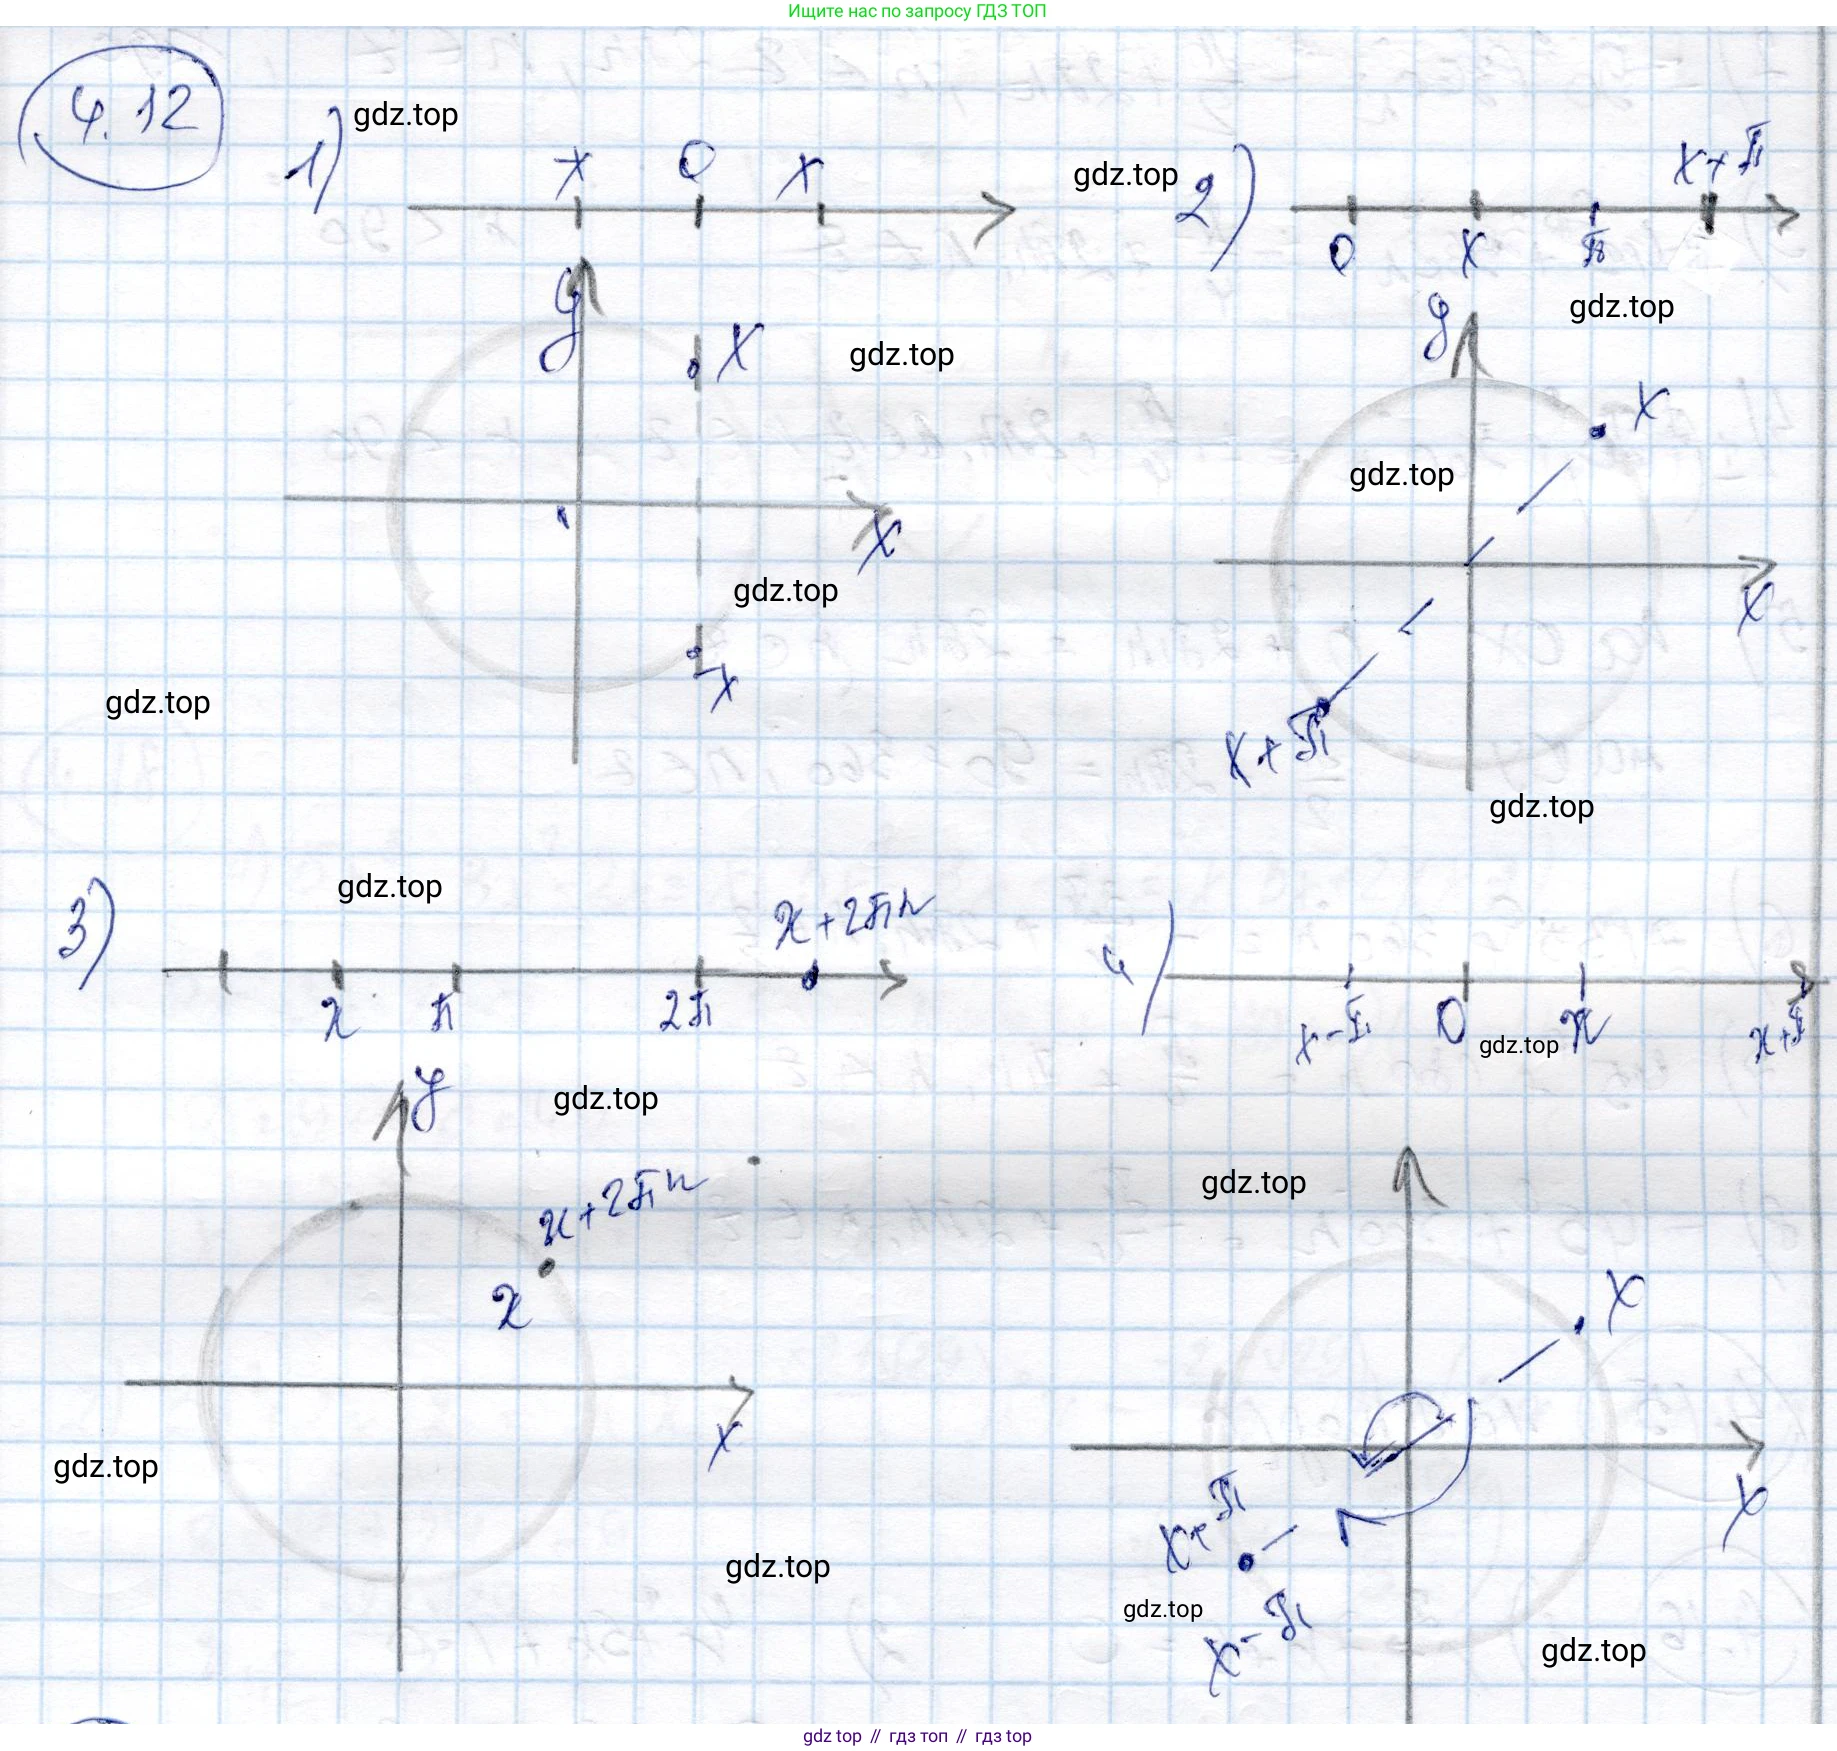 Ищите нас по запросу ГДЗ ТОП
4.12
1)
gdz.top
x 0 x
gdz.top
2)
0 x π x+π
y
x
gdz.top
x
-x
gdz.top
gdz.top
y
x
gdz.top
x
x+π
gdz.top
gdz.top
3)
gdz.top
x π 2π x+2πn
4)
x-π 0 x x+π
gdz.top
y
gdz.top
x+2πn
x
x
gdz.top
gdz.top
gdz.top
x
x
x+π
x-π
gdz.top
gdz.top
gdz top // гдз топ // гdз top